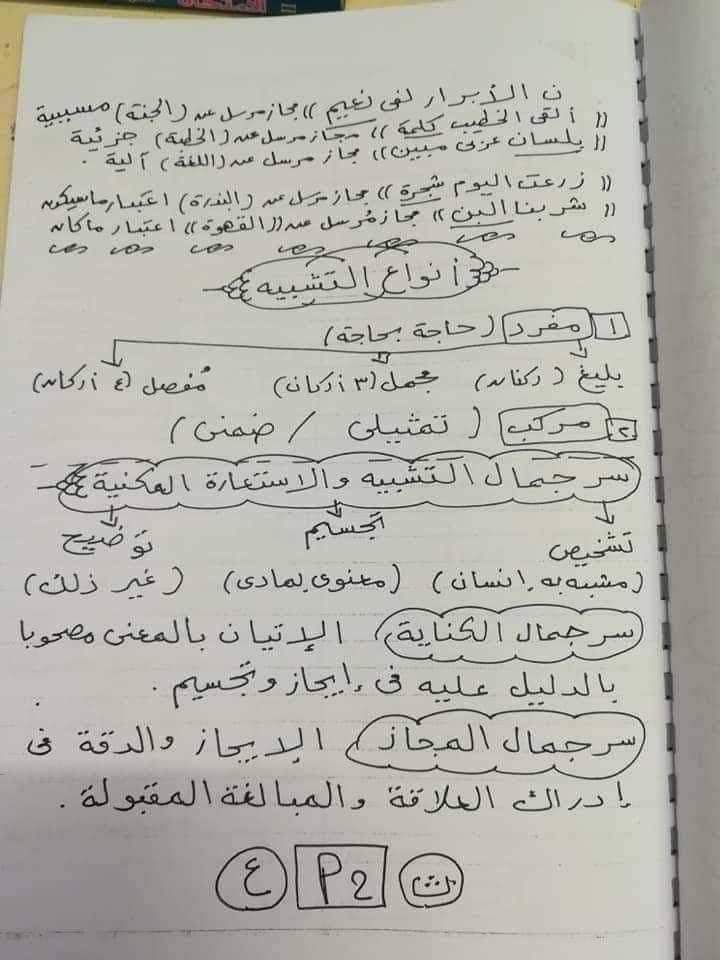 ن الأبرار لفى نعيم )) مجاز مرسل عن (الجنة) مسببية
(( ألقى الخطيب كلمة )) مجاز مرسل عن (الخطبة) جزئية
(( بلسان عربى مبين )) مجاز مرسل عن (اللغة) آلية .
(( زرعت اليوم شجرة )) مجاز مرسل عن (البذرة) اعتبار ماسيكون
(( شربنا البن )) مجاز مُرسل عن ((القهوة)) اعتبار ماكان
أنواع التشبيه
١ مفرد (حاجة بحاجة)
بليغ (ركنان) مجمل (٣ أركان) مُفصل (٤ أركان)
٢ مركب ( تمثيلى / ضمنى )
سر جمال التشبيه والاستعارة المكنية
تشخيص تجسيم توضيح
(مشبه به إنسان) (معنوى بمادى) (غير ذلك)
سر جمال الكناية الإتيان بالمعنى مصحوبا
بالدليل عليه فى إيجاز وتجسيم .
سر جمال المجاز الإيجاز والدقة فى
إدراك العلاقة والمبالغة المقبولة .
ث P2 ع